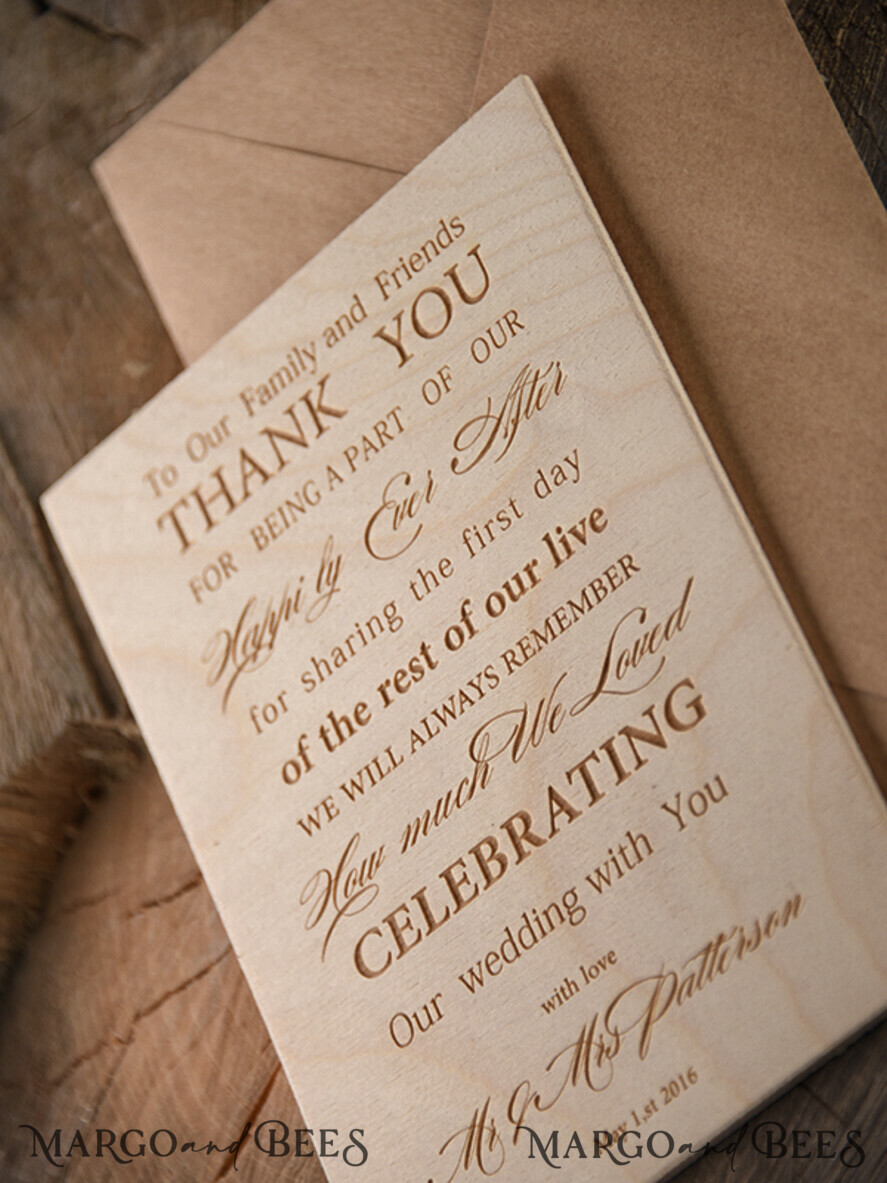 To Our Family and Friends
THANK YOU
FOR BEING A PART OF OUR
Happily Ever After
for sharing the first day
of the rest of our live
WE WILL ALWAYS REMEMBER
How much We Loved
CELEBRATING
Our wedding with You
with love
Mr & Mrs Patterson
1,st 2016
MARGO and BEES MARGO and BEES